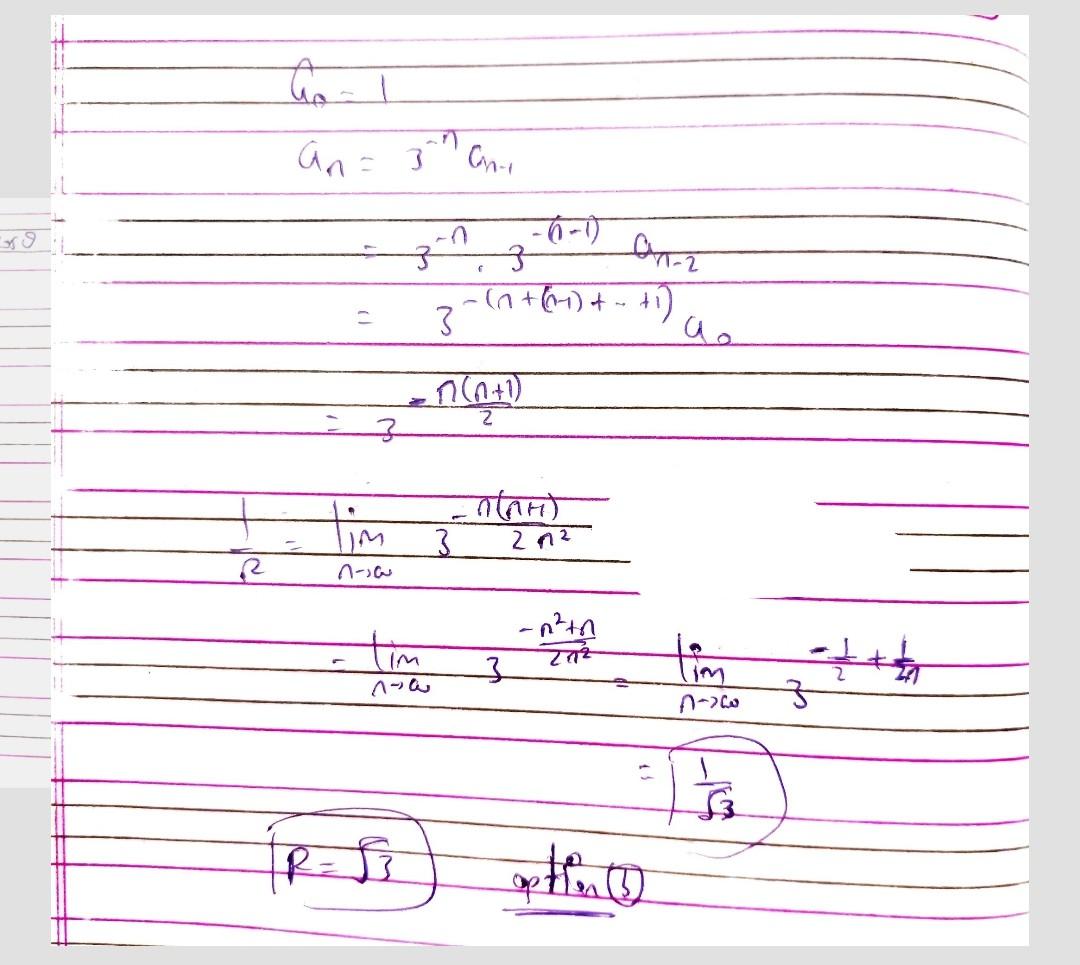 a₀ = 1
aₙ = 3⁻ⁿ aₙ₋₁
= 3⁻ⁿ . 3^-(n-1) aₙ₋₂
= 3^-(n+(n-1)+--+1) a₀
= 3^-n(n+1)/2
1/R = lim n→∞ 3^-n(n+1)/2n²
= lim n→∞ 3^(-n²+n)/2n² = lim n→∞ 3^-1/2+1/2n
= 1/√3
R = √3 option (3)